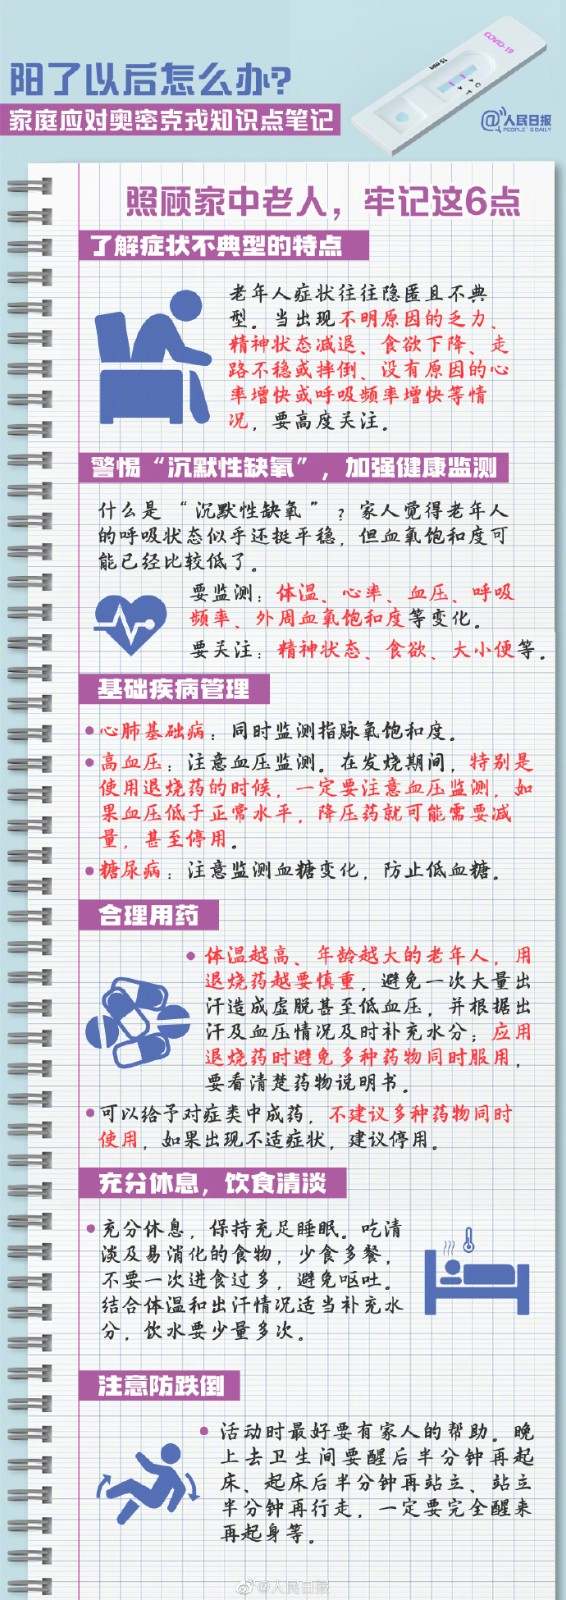 阳了以后怎么办?
家庭应对奥密克戎知识点笔记
COVID-19
15 min
C
T
@人民日报
PEOPLE'S DAILY
照顾家中老人，牢记这6点
了解症状不典型的特点
老年人症状往往隐匿且不典
型。当出现不明原因的乏力、
精神状态减退、食欲下降、走
路不稳或摔倒、没有原因的心
率增快或呼吸频率增快等情
况，要高度关注。
警惕“沉默性缺氧”，加强健康监测
什么是“沉默性缺氧”？家人觉得老年人
的呼吸状态似乎还挺平稳，但血氧饱和度可
能已经比较低了。
要监测：体温、心率、血压、呼吸
频率、外周血氧饱和度等变化。
要关注：精神状态、食欲、大小便等。
基础疾病管理
•心肺基础病：同时监测指脉氧饱和度。
•高血压：注意血压监测。在发烧期间，特别是
使用退烧药的时候，一定要注意血压监测，如
果血压低于正常水平，降压药就可能需要减
量，甚至停用。
•糖尿病：注意监测血糖变化，防止低血糖。
合理用药
•体温越高、年龄越大的老年人，用
退烧药越要慎重，避免一次大量出
汗造成虚脱甚至低血压，并根据出
汗及血压情况及时补充水分；应用
退烧药时避免多种药物同时服用，
要看清楚药物说明书。
•可以给予对症类中成药，不建议多种药物同时
使用，如果出现不适症状，建议停用。
充分休息，饮食清淡
•充分休息，保持充足睡眠。吃清
淡及易消化的食物，少食多餐，
不要一次进食过多，避免呕吐。
结合体温和出汗情况适当补充水
分，饮水要少量多次。
注意防跌倒
•活动时最好要有家人的帮助。晚
上去卫生间要醒后半分钟再起
床、起床后半分钟再站立、站立
半分钟再行走，一定要完全醒来
再起身等。
@人民日报